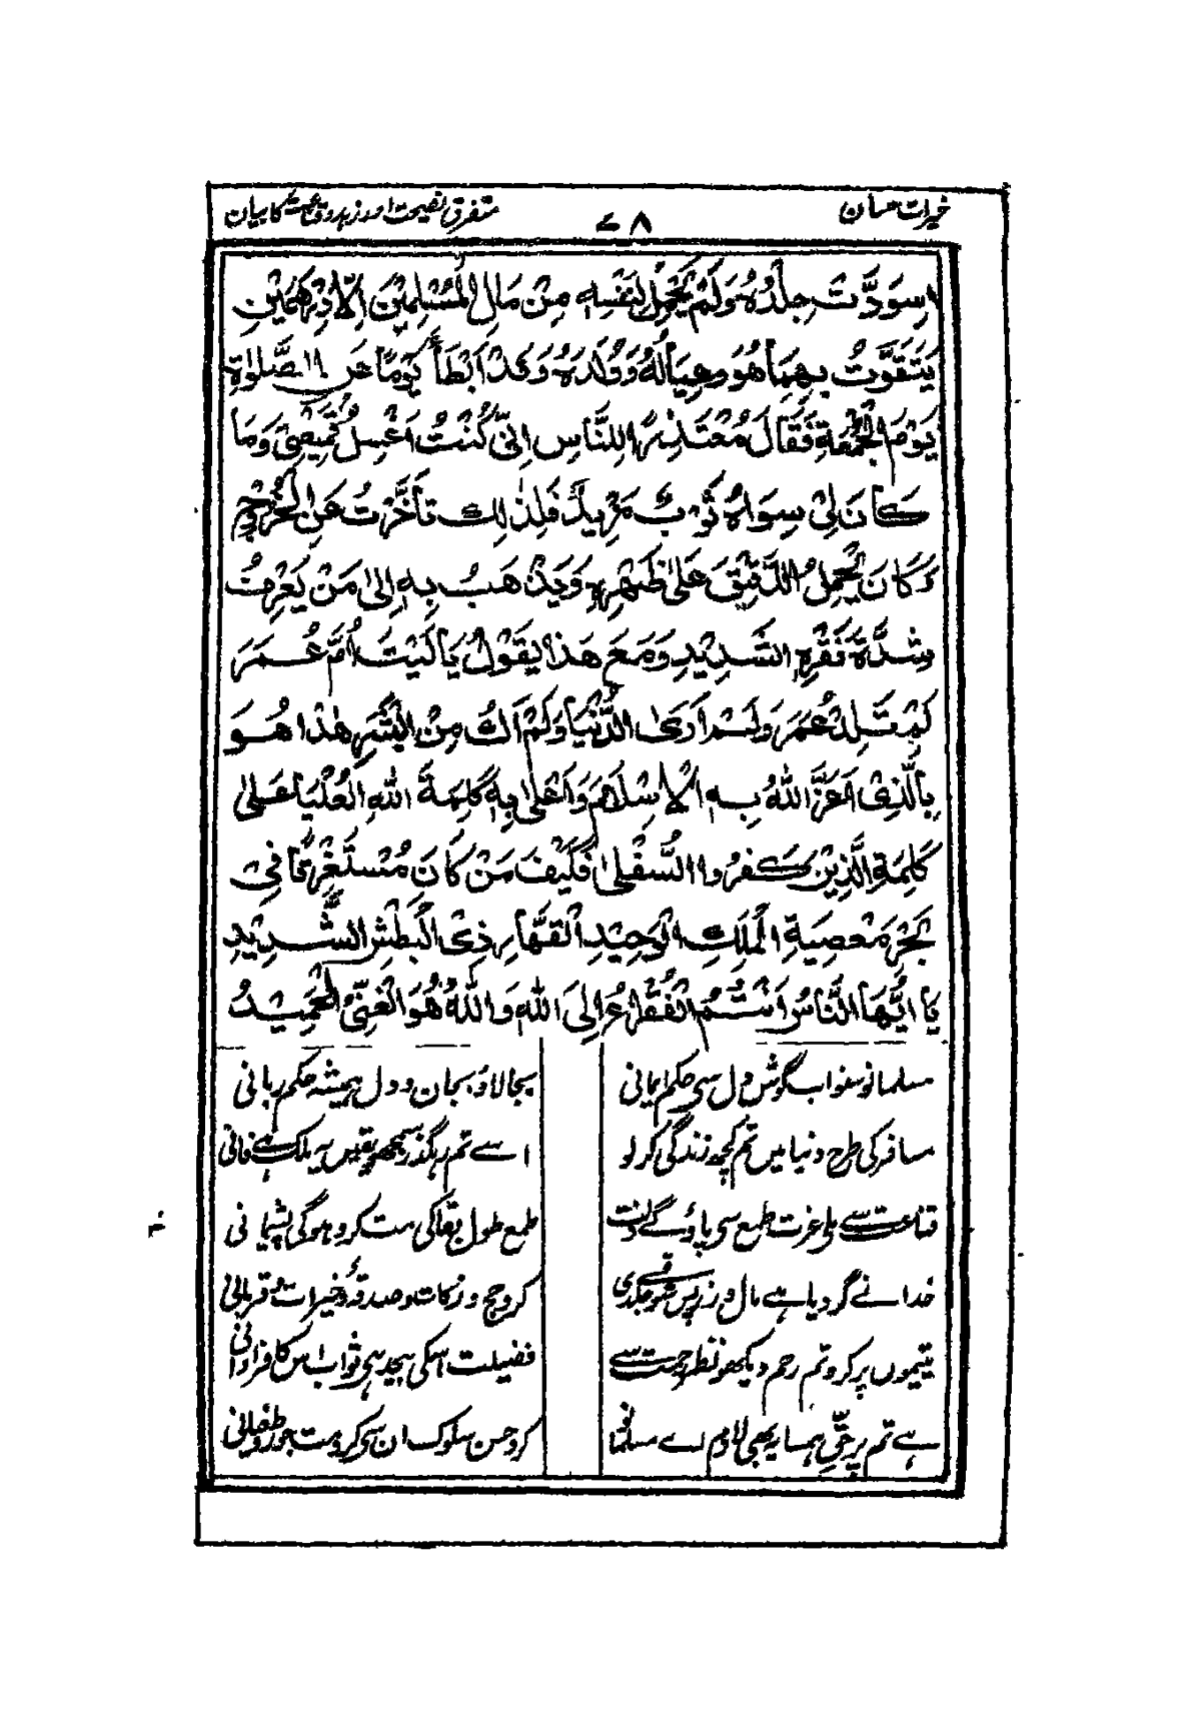 خیرات حسان ۷۸ متفرق نصیحت اور زہد وقناعت کا بیان
اِسوَدَّتْ جِلْدُهُ وَلَمْ يَحْمِلْ لِنَفْسِهٖ مِنْ مَالِ الْمُسْلِمِيْنَ اِلَّا دِرْهَمَيْنِ
يَتَقَوَّتُ بِهِمَا هُوَ وَعِيَالُهُ وَوُلْدُهُ وَقَدْ اَبْطَأَ يَوْمًا عَنِ الصَّلٰوةِ
يَوْمَ الْجُمُعَةِ فَقَالَ مُعْتَذِرًا لِلنَّاسِ اِنِّيْ كُنْتُ اَغْسِلُ قَمِيْصِيْ وَمَا
كَانَ لِيْ سِوَاهُ ثَوْبٌ مَزِيْدٌ فَلِذٰلِكَ تَأَخَّرْتُ عَنِ الْخُرُوْجِ
وَكَانَ يَحْمِلُ الدَّقِيْقَ عَلٰى ظَهْرِهٖ وَيَذْهَبُ بِهٖ اِلٰى مَنْ يَعْرِفُ
شِدَّةَ فَقْرِهِ الشَّدِيْدِ وَمَعَ هٰذَا يَقُوْلُ يَا لَيْتَ اُمَّ عُمَرَ
لَمْ تَلِدْ عُمَرَ وَلَمْ اَرَى الدُّنْيَا وَلَمْ اَكُ مِنَ الْبَشَرِ هٰذَا هُوَ
بِالَّذِيْ اَعَزَّ اللهُ بِهِ الْاِسْلَامَ وَاَعْلٰى بِهٖ كَلِمَةَ اللهِ الْعُلْيَا عَلٰى
كَلِمَةِ الَّذِيْنَ كَفَرُوا السُّفْلٰى فَكَيْفَ مَنْ كَانَ مُسْتَغْرِقًا فِيْ
بَحْرِ مَعْصِيَةِ الْمَلِكِ الْوَحِيْدِ الْقَهَّارِ ذِي الْبَطْشِ الشَّدِيْدِ
يَا اَيُّهَا النَّاسُ اَنْتُمُ الْفُقَرَاءُ اِلَى اللهِ وَاللهُ هُوَ الْغَنِيُّ الْحَمِيْدُ
مسلمانو سنو اب گوش دل سی حکم ایمانی بجالاؤ بجان و دل ہمیشہ حکم ربانی
مسافر کی طرح دنیا میں تم کچھ زندگی کرلو اسے تم رہگذر سمجھو یقیں یہ ملک ہے فانی
قناعت سے ملی عزت طمع سی پاؤگے ذلت طمع طول بقا کی مت کرو ہوگی پشیمانی
خدا نے گر دیا ہے مال و زر پس شوق سے جلدی کرو حج و زکات و صدقۂ و خیرات و قربانی
یتیموں پر کرو تم رحم دیکھو نظر رحمت سے فضیلت اسکی بیحد ہی ثواب اس کا فراوانی
ہے تم پر حقِّ ہمسایہ بھی لازم اے مسلمانو کرو حسن سلوک ان سی کرو مت جور و طغیانی